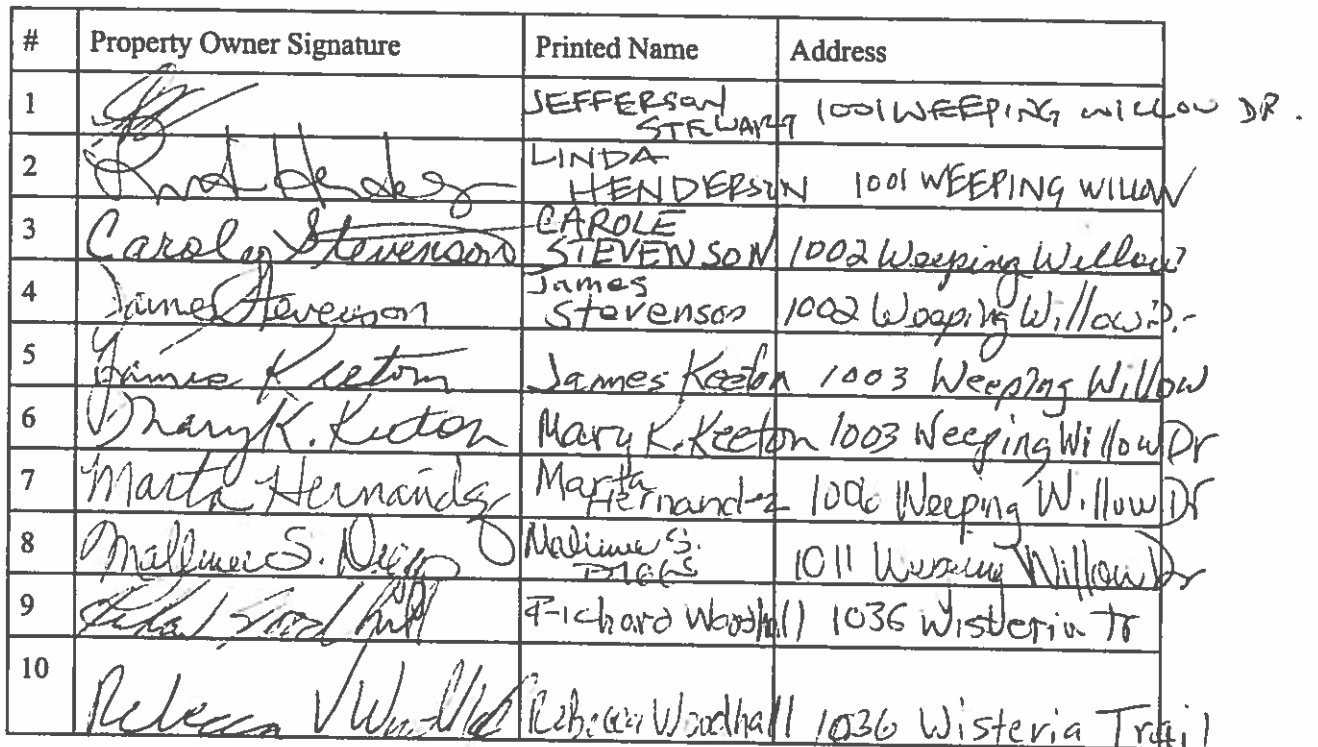 # Property Owner Signature Printed Name Address
1 JEFFERSON STEWART 1001 WEEPING WILLOW DR.
2 LINDA HENDERSON 1001 WEEPING WILLOW
3 Carolyn Stevenson CAROLE STEVENSON 1002 Weeping Willow
4 James Stevenson James Stevenson 1002 Weeping Willow
5 James Keeton James Keeton 1003 Weeping Willow
6 Mary K. Keeton Mary K. Keeton 1003 Weeping Willow Dr
7 Marta Hernandez Marta Hernandez 1006 Weeping Willow Dr
8 S. S. 1011 Weeping Willow Dr
9 Richard Woodhall 1036 Wisteria Tr
10 Rebecca V Woodhall Rebecca Woodhall 1036 Wisteria Trail